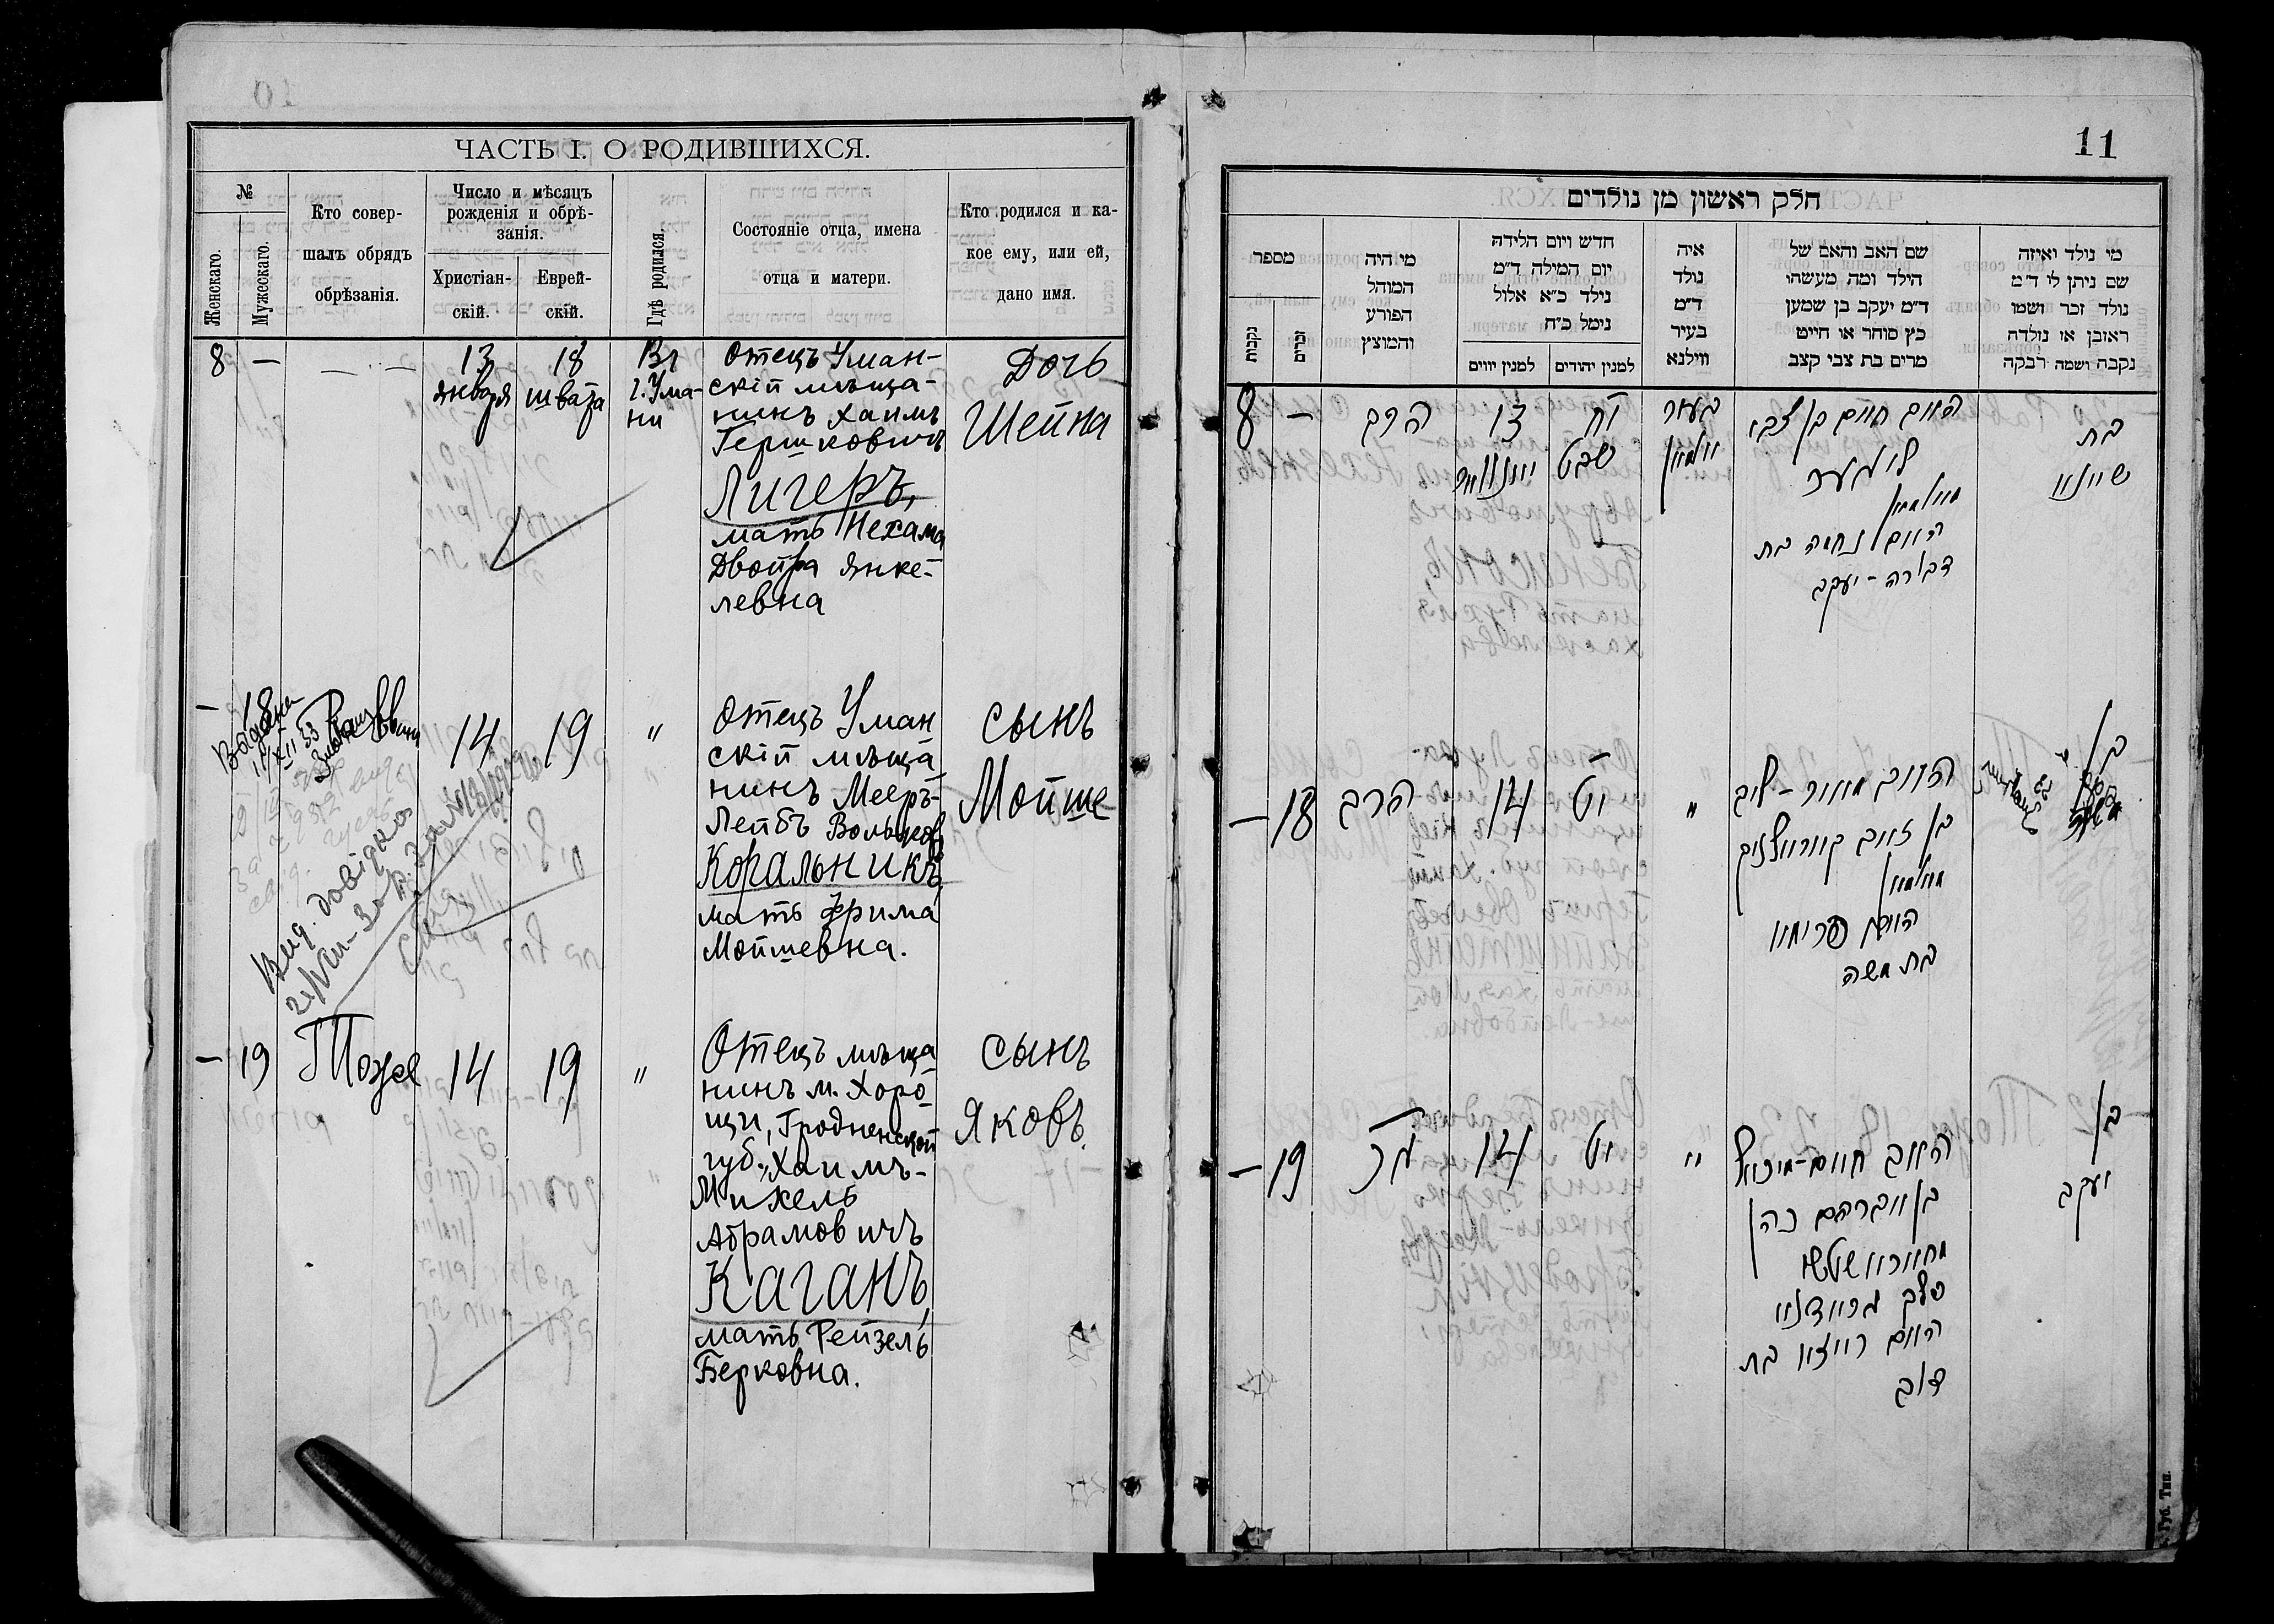 ЧАСТЬ I. О РОДИВШИХСЯ.
№
Женскаго.
Мужескаго.
Кто совер-
шалъ обрядъ
обрѣзанія.
Число и мѣсяцъ
рожденія и обрѣ-
занія.
Христіан-
скій.
Еврей-
скій.
Гдѣ родился.
Состояніе отца, имена
отца и матери.
Кто родился и ка-
кое ему, или ей,
дано имя.
8 —
13
января
18
швата
Въ
г. Ума-
ни
Отецъ Уман-
скій мѣща-
нинъ Хаимъ
Гершковичъ
Лигеръ,
мать Нехама
Двойра Янке-
левна
Дочь
Шейна
— 18
14
19
"
Отецъ Уман
скій мѣща
нинъ Мееръ-
Лейбъ Вольков
Коральникъ,
мать Фрима
Мойшевна.
сынъ
Мойше
Вид. довідка
— 19
Тоже
14
19
"
Отецъ мѣща
нинъ м. Хоро
щи, Гродненской
губ., Хаимъ-
Михель
Абрамовичъ
Каганъ,
мать Рейзель
Берковна.
сынъ
Яковъ.
11
חלק ראשון מן נולדים
מספר
נקבות
זכרים
מי היה
המוהל
הפורע
והמוצץ
חדש ויום הלידה
יום המילה ד״מ
נולד כ״א אלול
נימל כ״ח
למנין יווים
למנין יהודים
איה
נולד
ד״מ
בעיר
ווילנא
שם האב והאם של
הילד ומה מעשהו
ד״מ יעקב בן שמען
כץ סוחר או חייט
מרים בת צבי קצב
מי נולד ואיזה
שם ניתן לו ד״מ
נולד זכר ושמו
ראובן או נולדה
נקבה ושמה רבקה
8 —
הרב
13
יח
שבט
האב חיים בן צבי
ליגער
האם נחמה בת
דבורה - יעקב
בת
שיינא
— 18
הרב
14
יט
"
האב מאיר - ליב
בן זאב קאראלניק
האם פרימא
בת משה
בן
— 19
14
יט
"
האב חיים - מיכאל
בן אברהם כהן
פלך גראדנא
האם רייזא בת
דוב
בן
יעקב
Губ. Тип.